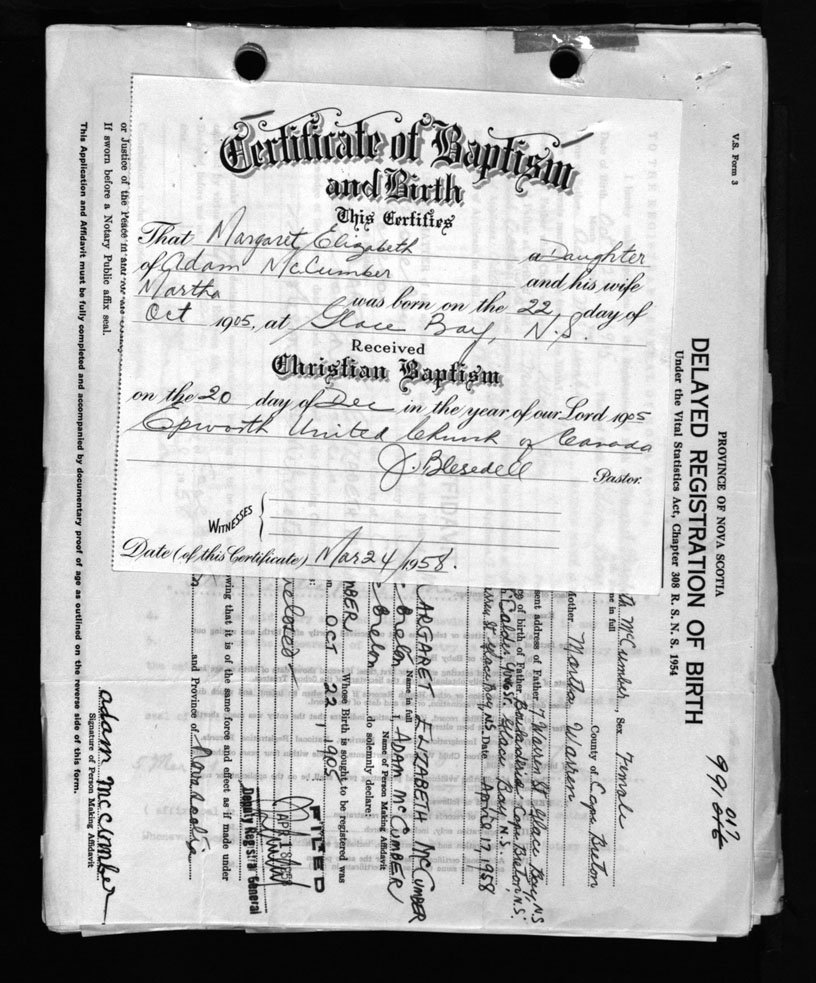 Certificate of Baptism
and Birth
This Certifies
That Margaret Elizabeth a Daughter
of Adam McCumber and his wife
Martha was born on the 22 day of
Oct 1905, at Glace Bay, N.S.
Received
Christian Baptism
on the 20 day of Dec in the year of our Lord 1905
Epworth United Church of Canada
J. Blesedell Pastor.
WITNESSES
Date (of this Certificate) Mar 24/1958.
V.S. Form 3
PROVINCE OF NOVA SCOTIA
DELAYED REGISTRATION OF BIRTH
Under the Vital Statistics Act, Chapter 308 R. S. N. S. 1954
99,
017
th McCumber Sex Female
me in full
County of Cape Breton
Mother Martha Warren
resent address of Father 7 Warren St Glace Bay, N.S
of birth of Father Cape Breton N.S.
Calder, York St. Glace Bay N.S.
Warren St Glace Bay, N.S. Date April 17, 1958
ARGARET ELIZABETH McCUMBER
Name in full
Breton I, ADAM McCUMBER
Name of Person Making Affidavit
Breton do solemnly declare:
MBER Whose Birth is sought to be registered was
on OCT 22, 1905
nclosed
FILED
APR 18 1958
Deputy Registrar General
wing that it is of the same force and effect as if made under
and Province of Nova Scotia
adam mccumber
Signature of Person Making Affidavit
or Justice of the Peace in and for the County
If sworn before a Notary Public affix seal.
This Application and Affidavit must be fully completed and accompanied by documentary proof of age as outlined on the reverse side of this form.